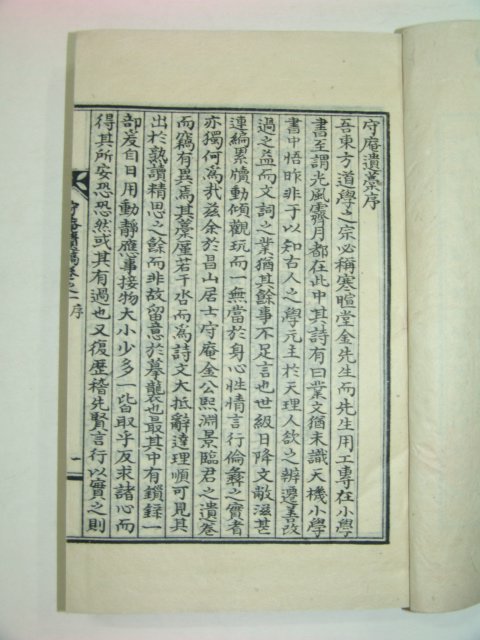 守庵遺藁序
吾東方道學之宗必稱寒暄堂金先生而先生用工專在小學
書至謂光風霽月都在此中其詩有曰業文猶未識天機小學
書中悟昨非于以知古人之學元主於天理人欲之辨遷善改
過之益而文詞之業猶其餘事不足言也世級日降文敝滋甚
連編累牘動傾觀玩而一無當於身心性情言行倫彝之實者
亦獨何爲哉玆余於昌山居士守庵金公熙淵景臨君之遺卷
而竊有異焉其藁廑若干沓而爲詩文大抵辭達理順可見其
出於熟讀精思之餘而非故留意於摹襲也最其中有鎖錄一
部爰自日用動靜應事接物大小少多一皆取乎反求諸心而
得其所安恐恐然或其有過也又復歷稽先賢言行以實之則
守庵遺稿卷之一 序 一